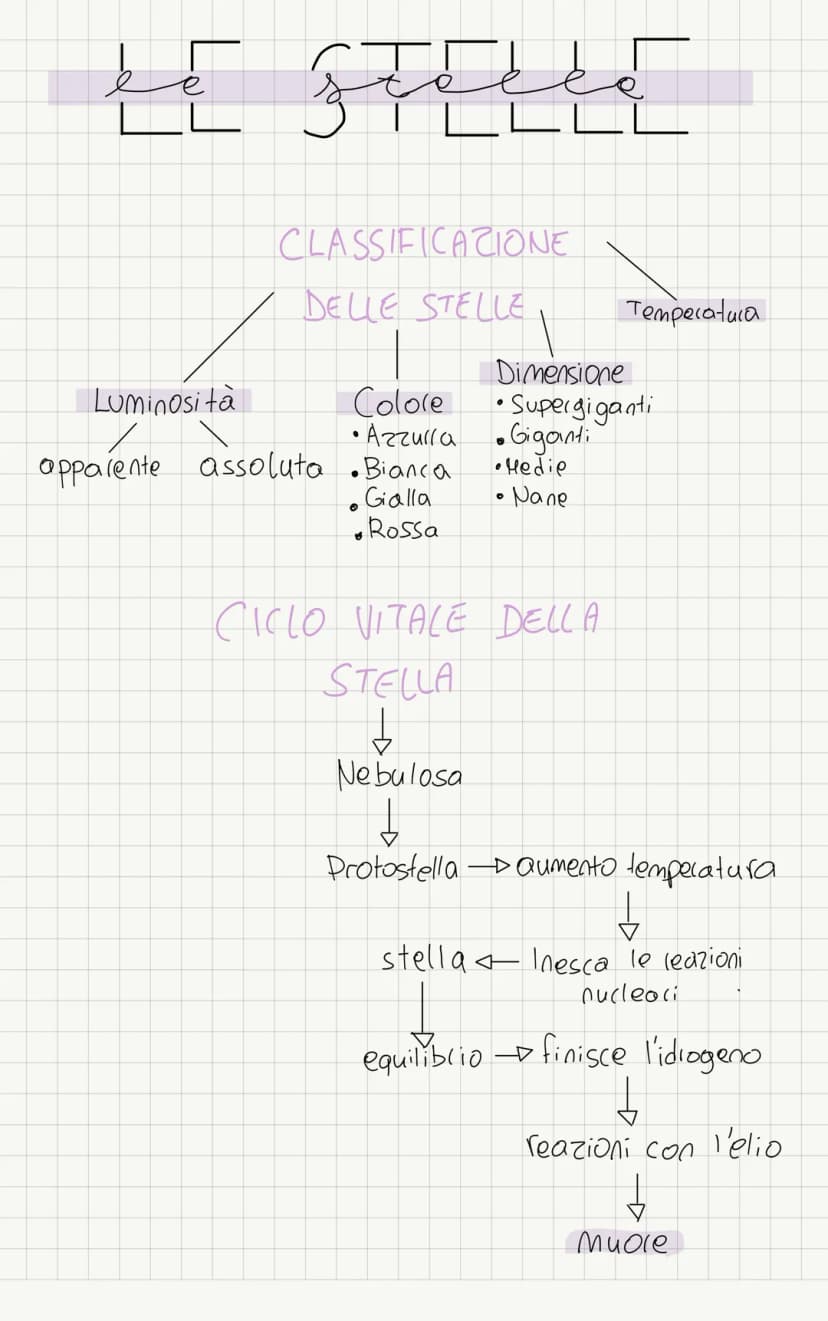 LE STELLE
le stelle
CLASSIFICAZIONE
DELLE STELLE
Temperatura
Luminosità
apparente assoluta
Colore
• Azzurra
• Bianca
• Gialla
• Rossa
Dimensione
• Supergiganti
• Giganti
• Medie
• Nane
CICLO VITALE DELLA
STELLA
Nebulosa
Protostella → aumento temperatura
stella ← Inesca le reazioni
nucleari
equilibrio → finisce l'idrogeno
reazioni con l'elio
muore